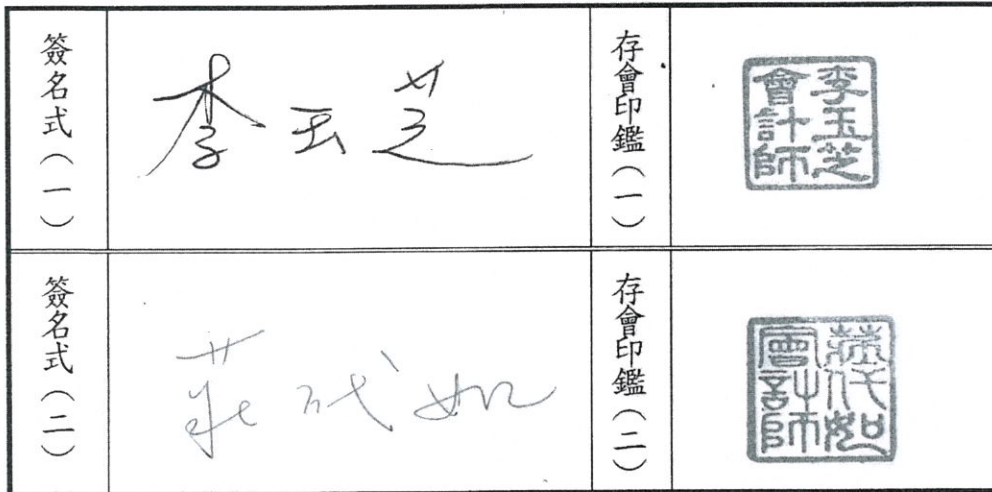 簽名式（一）
李玉芝
存會印鑑（一）
李玉芝
會計師
簽名式（二）
莊代如
存會印鑑（二）
莊代如
會計師